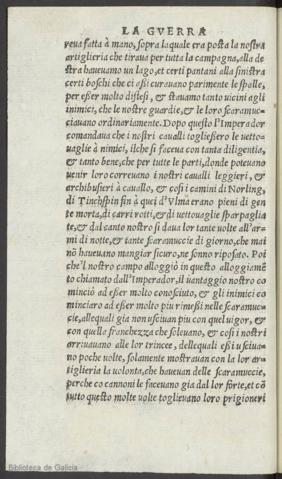 LA GVERRA
reua fatta à mano, sopra laquale era posta la nostra
artiglieria che tiraua per tutta la campagna, alla de
stra haueuamo un lago, et certi pantani alla sinistra
certi boschi che ci assi curauano parimente le spalle,
per esser molto difesi, & stauamo tanto uicini agli
inimici, che le nostre guardie, & le loro scaramuc-
ciauano ordinariamente. Dopo questo l'Imperador
comandaua che i nostri caualli togliessero le uetto-
uaglie à nimici, ilche si faceua con tanta diligentia,
& tanto bene, che per tutte le parti, donde poteuano
uenir loro correuano i nostri caualli leggieri, &
archibusieri à cauallo, & cosi i camini di Norling,
di Tinchspin sin à quei d'Vlma erano pieni di gen
te morta, di carri rotti, & di uettouaglie sparpaglia
te, & dal canto nostro si daua lor tante uolte all'ar-
mi di notte, & tante scaramuccie di giorno, che mai
nō haueuano mangiar sicuro, ne sonno riposato. Poi
che'l nostro campo alloggiò in questo alloggiamē
to chiamato dall'Imperador, il uantaggio nostro co
minciò ad esser molto conosciuto, & gli inimici co
minciaro ad esser molto piu rimessi nelle scaramuc-
cie, allequali gia non usciuan piu con quel uigor, &
con quella franchezza che soleuano, & cosi i nostri
arriuauano alle lor trincee, dellequali essi usciua-
no poche uolte, solamente mostrauan con la lor ar-
tiglieria la uolonta, che haueuan delle scaramuccie,
perche co cannoni le faceuano gia dal lor forte, et cō
tutto questo molte uolte toglieuano loro prigioneri
Biblioteca de Galicia